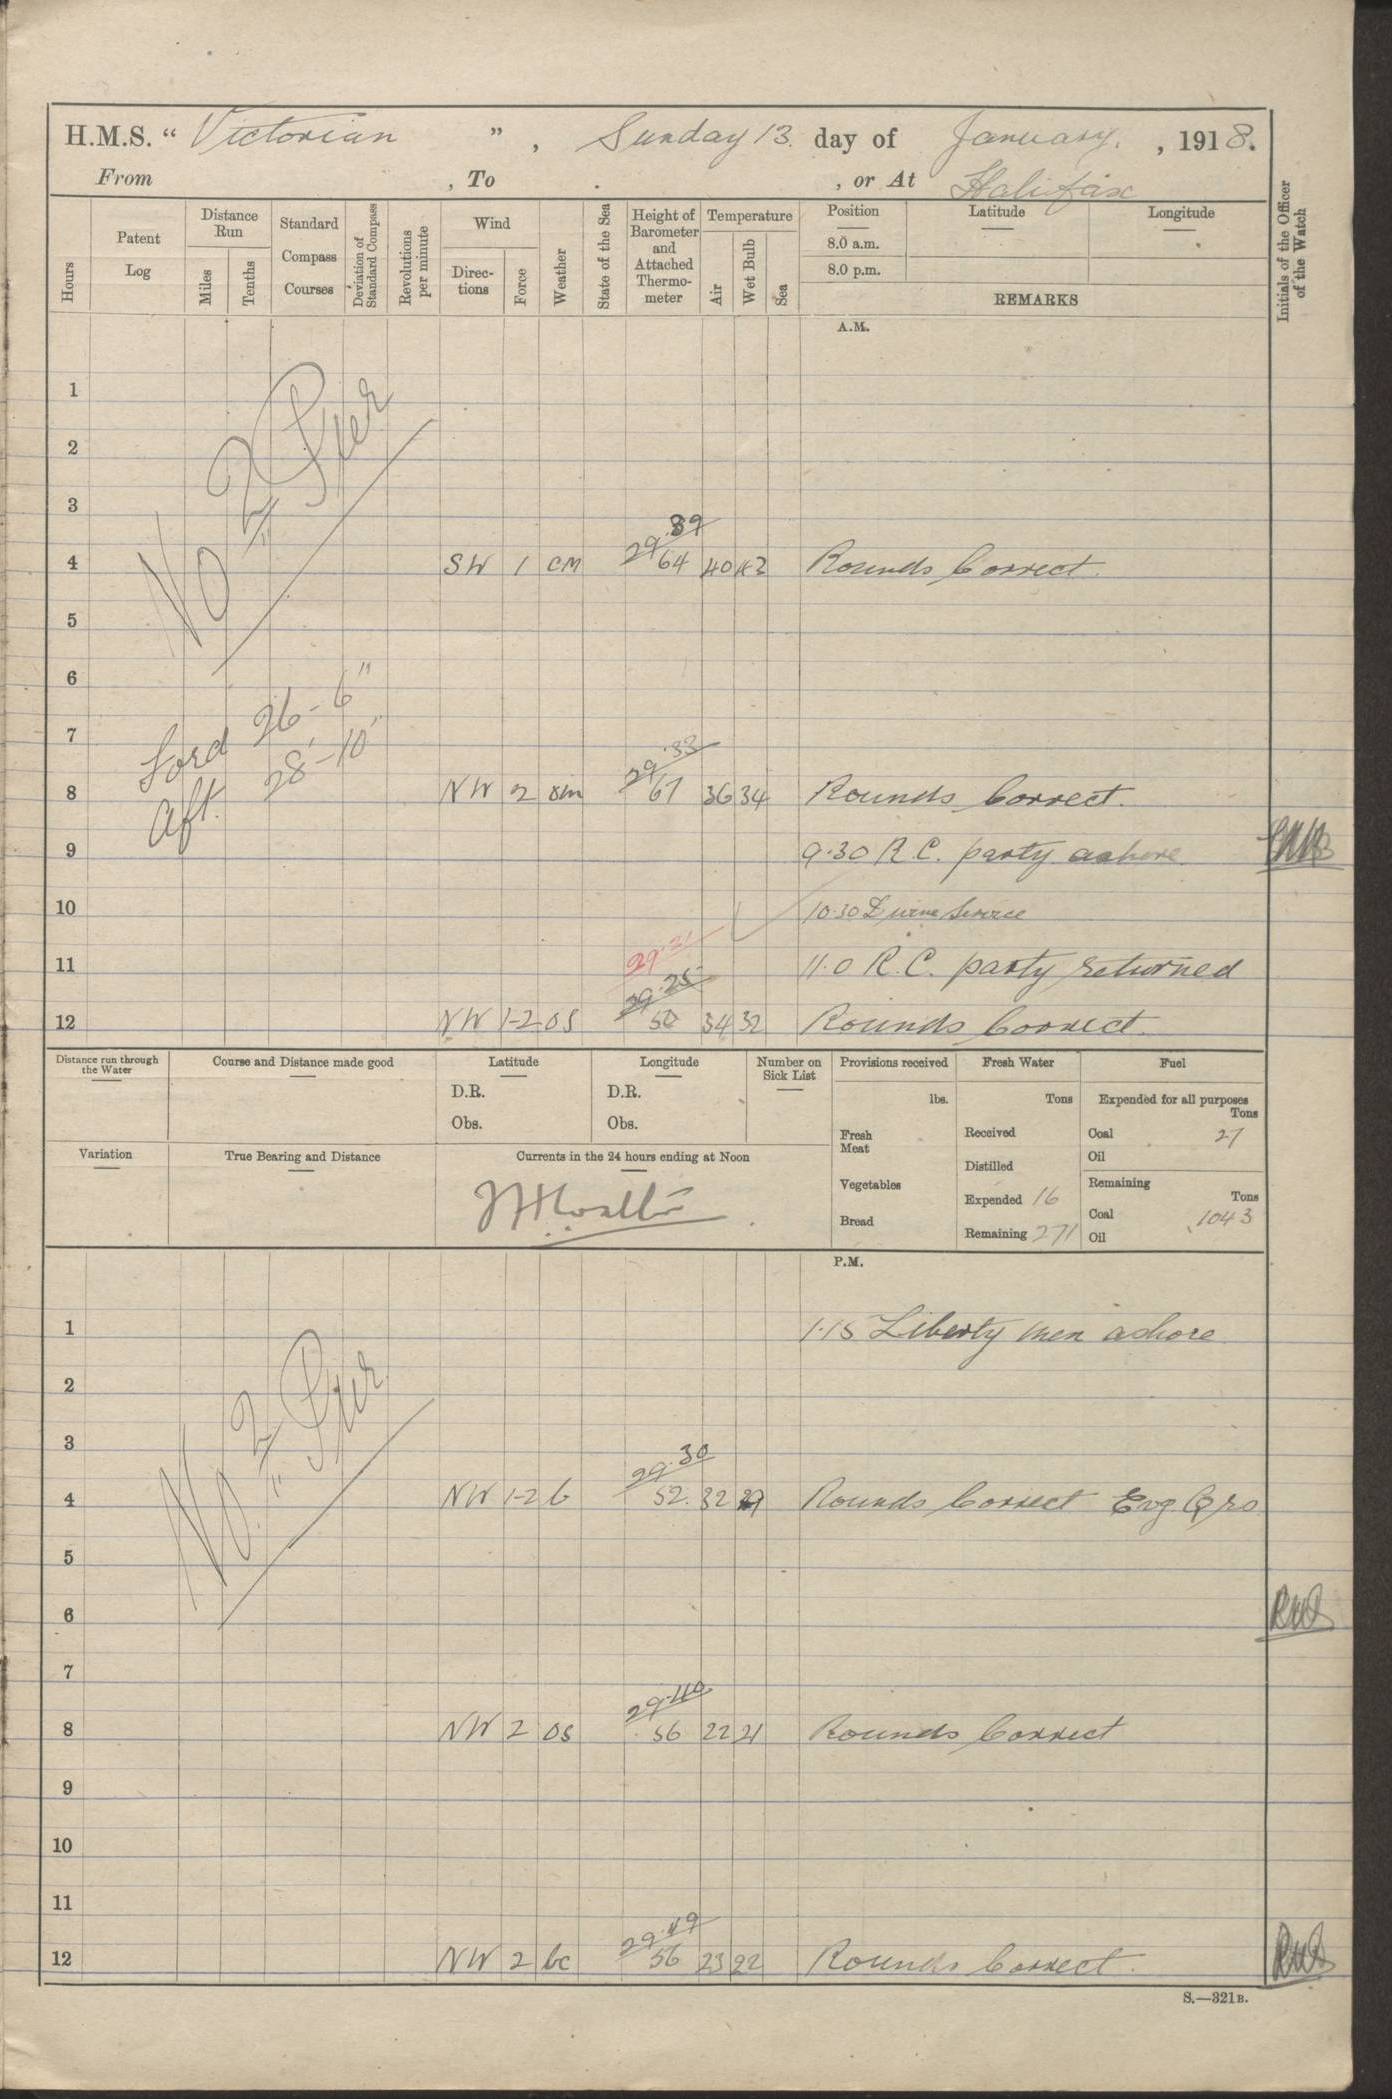 H.M.S. “ Victorian ” , Sunday 13. day of January. , 1918.
From , To . , or At Halifax
Hours
Patent Log
Distance Run
Miles
Tenths
Standard Compass Courses
Deviation of Standard Compass
Revolutions per minute
Wind
Directions
Force
Weather
State of the Sea
Height of Barometer and Attached Thermometer
Temperature
Air
Wet Bulb
Sea
Position
8.0 a.m.
8.0 p.m.
Latitude
Longitude
REMARKS
Initials of the Officer of the Watch
A.M.
No 2 Pier
1
2
3
29.89
4 SW 1 cm 64 40 Rounds Correct.
5
6
Ford 26'-6"
7
Aft. 28'-10"
29.33
8 NW 2 om 67 36 34 Rounds Correct.
9 9.30 R.C. party ashore
10 10.30 Divine Service
29.21
11 11.0 R.C. party returned
29.25
12 NW 1-2 os 50 34 32 Rounds Correct.
Distance run through the Water
Course and Distance made good
Latitude
D.R.
Obs.
Longitude
D.R.
Obs.
Number on Sick List
Provisions received
lbs.
Fresh Meat
Vegetables
Bread
Fresh Water
Tons
Received
Distilled
Expended 16
Remaining 271
Fuel
Expended for all purposes
Tons
Coal 27
Oil
Remaining
Tons
Coal 1043
Oil
Variation
True Bearing and Distance
Currents in the 24 hours ending at Noon
P.M.
No. 2 Pier
1 1.15 Liberty men ashore
2
3
29.30
4 NW 1-2 b 52. 32 29 Rounds Correct Evg Qrs
5
6
7
29.40
8 NW 2 os 56 22 21 Rounds Correct
9
10
11
29.49
12 NW 2 bc 56 23 22 Rounds Correct.
S.—321B.